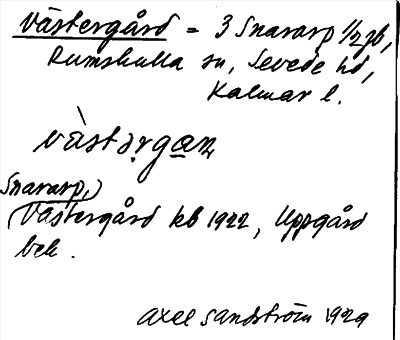 Västergård = 3 Snararp 1/2 gb,
Rumskulla sn, Sevede hd,
Kalmar l.
vàstərgan
Snararp,)
(Västergård kb 1922, Uppgård
bek.
Axel Sandström 1929